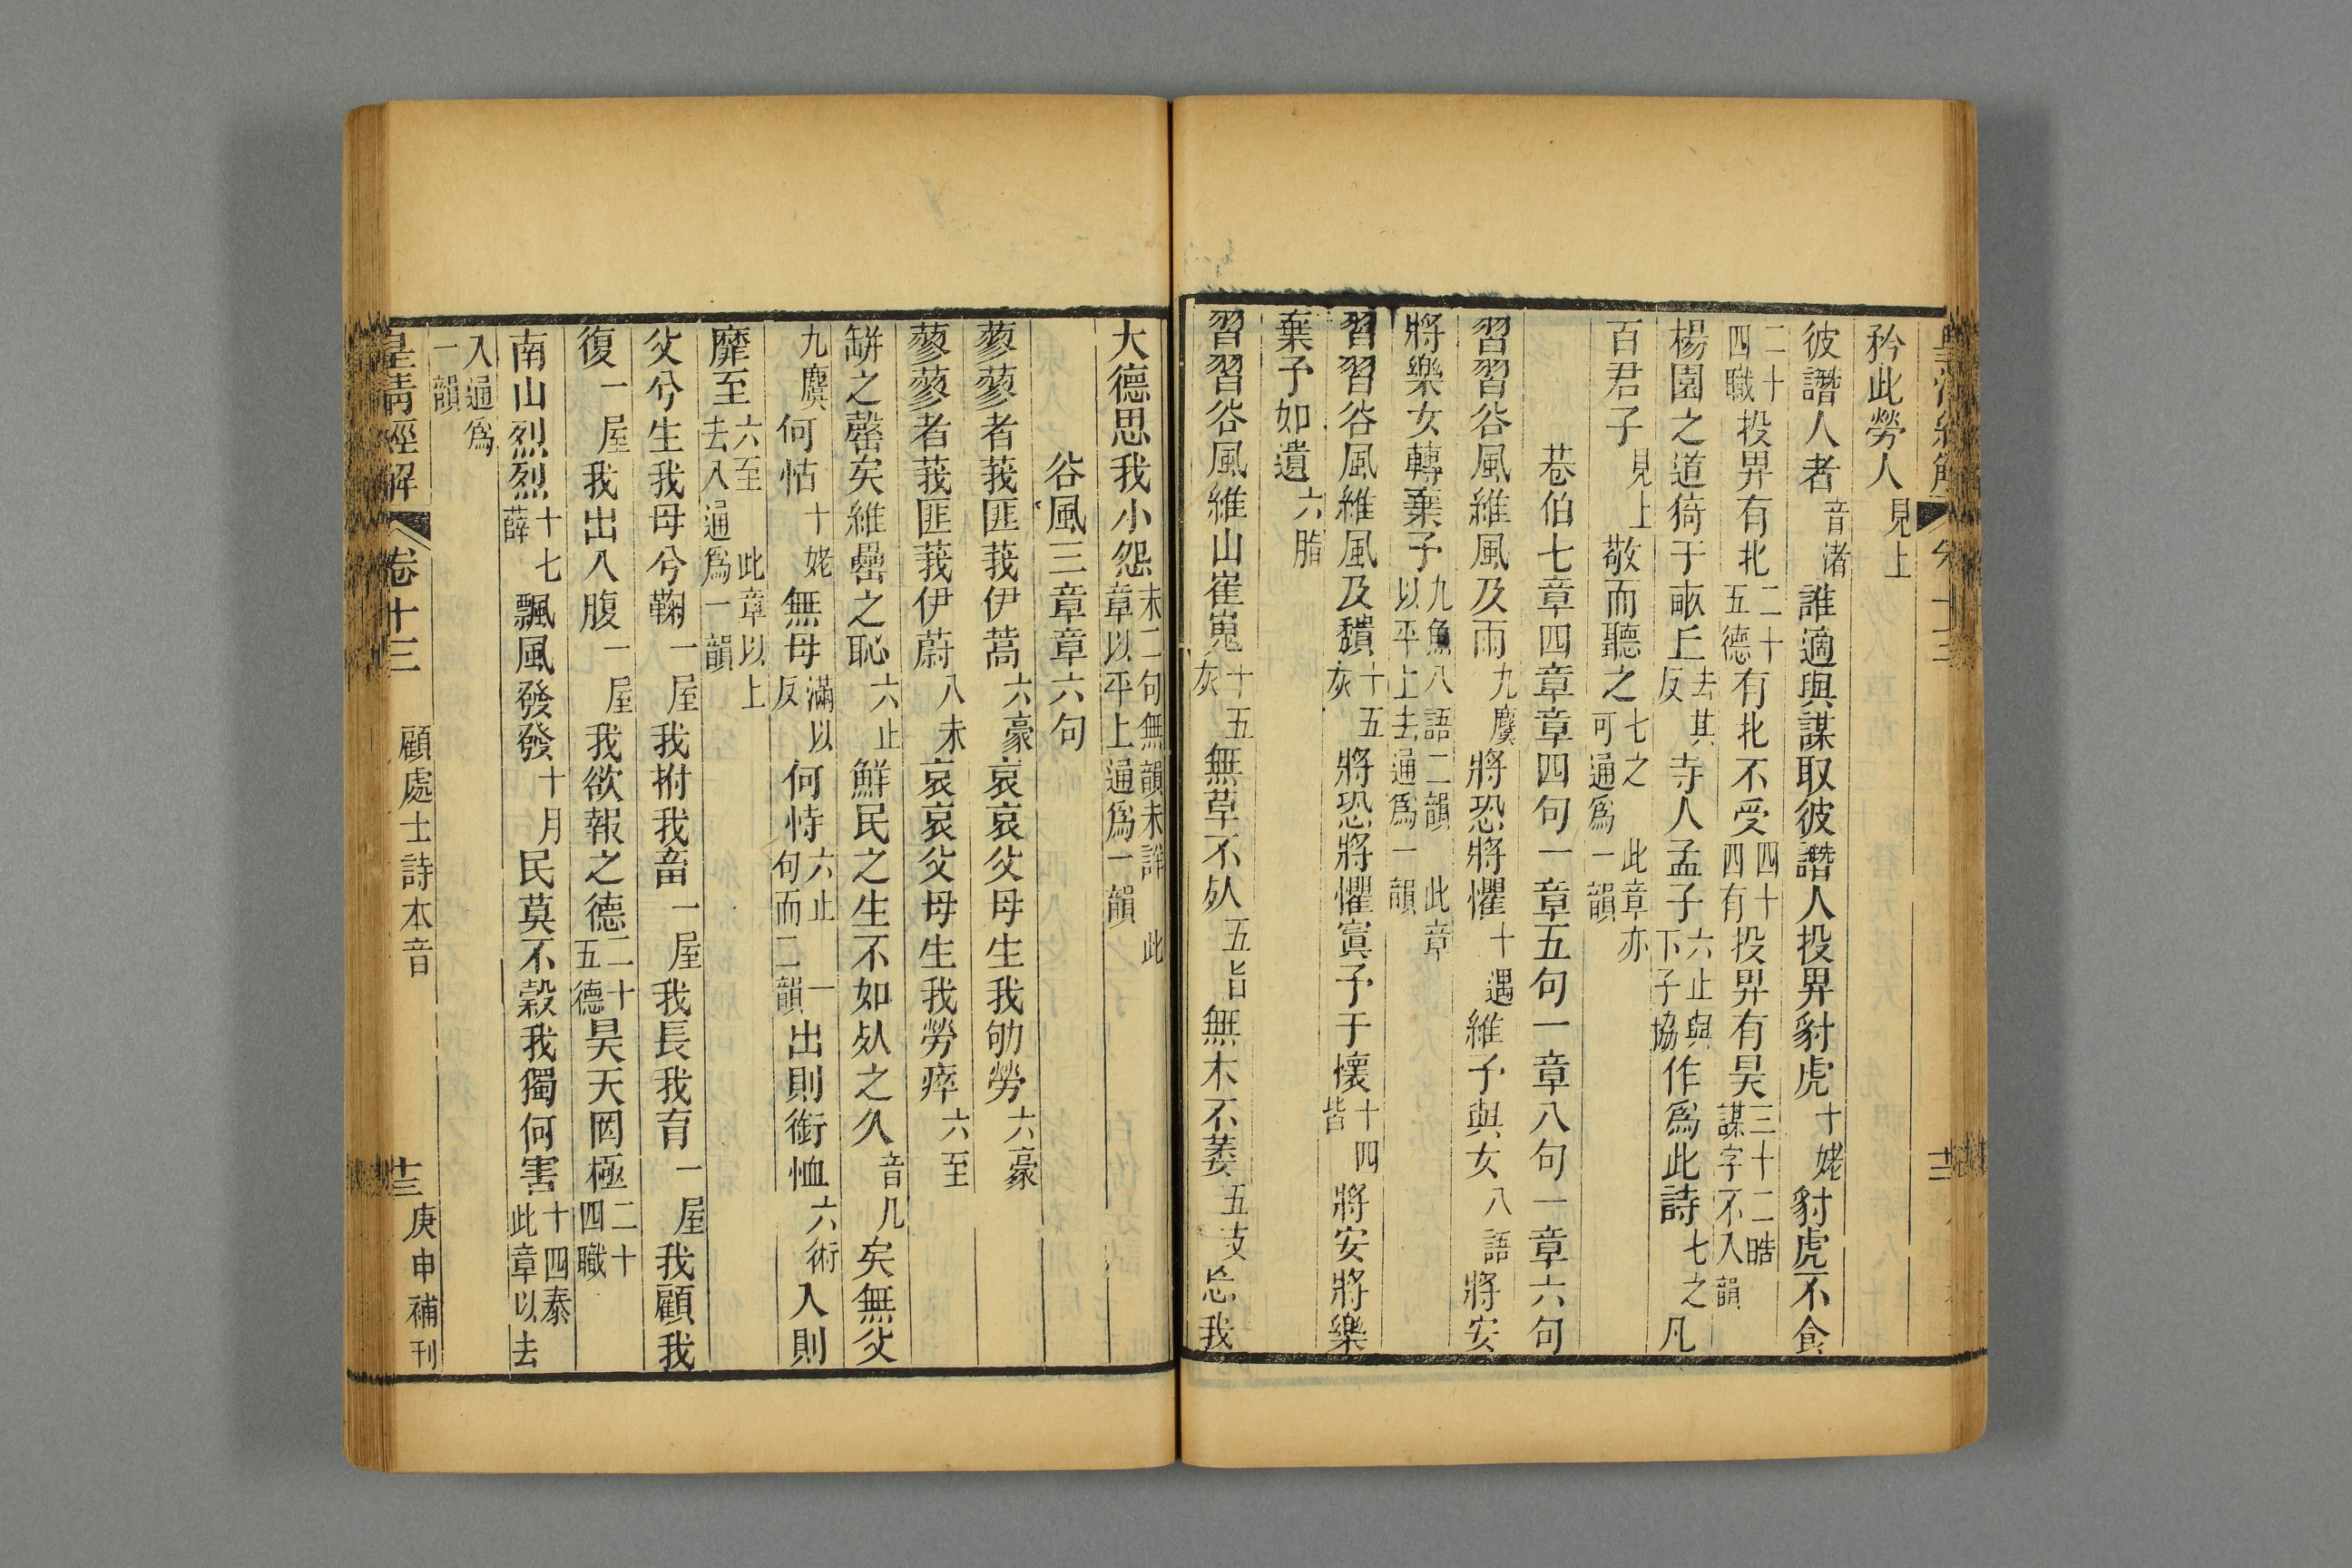 矜此勞人見上
彼譖人者音渚誰適與謀取彼譖人投畀豺虎十姥豺虎不食
二十四職投畀有北二十五德有北不受四十四有投畀有昊三十二晧謀字不入韻
楊園之道猗于畝丘去其反寺人孟子六止與下子協作爲此詩七之凡
百君子見上敬而聽之七之此章亦可通爲一韻
巷伯七章四章章四句一章五句一章八句一章六句
習習谷風維風及雨九麌將恐將懼十遇維予與女八語將安
將樂女轉棄予九魚八語二韻此章以平上去通爲一韻
習習谷風維風及頹十五灰將恐將懼寘予于懷十四皆將安將樂
棄予如遺六脂
習習谷風維山崔嵬十五灰無草不𣦸五旨無木不萎五支忘我
大德思我小怨末二句無韻未詳此章以平上通爲一韻
谷風三章章六句
蓼蓼者莪匪莪伊蒿六豪哀哀父母生我劬勞六豪
蓼蓼者莪匪莪伊蔚八未哀哀父母生我勞瘁六至
缾之罄矣維罍之恥六止鮮民之生不如𣦸之久音几矣無父
何怙九麌十姥無母滿以反何恃六止一句而二韻出則銜恤六術入則
靡至六至此章以上去入通爲一韻
父兮生我母兮鞠一屋我拊我畜一屋我長我育一屋我顧我
復一屋我出入腹一屋我欲報之德二十五德昊天罔極二十四職
南山烈烈十七薛飄風發發十月民莫不穀我獨何害十四泰此章以去
入通爲一韻
皇清經解 卷十三 顧處士詩本音 十三 庚申補刊